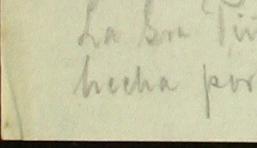 La Sra
hecha por